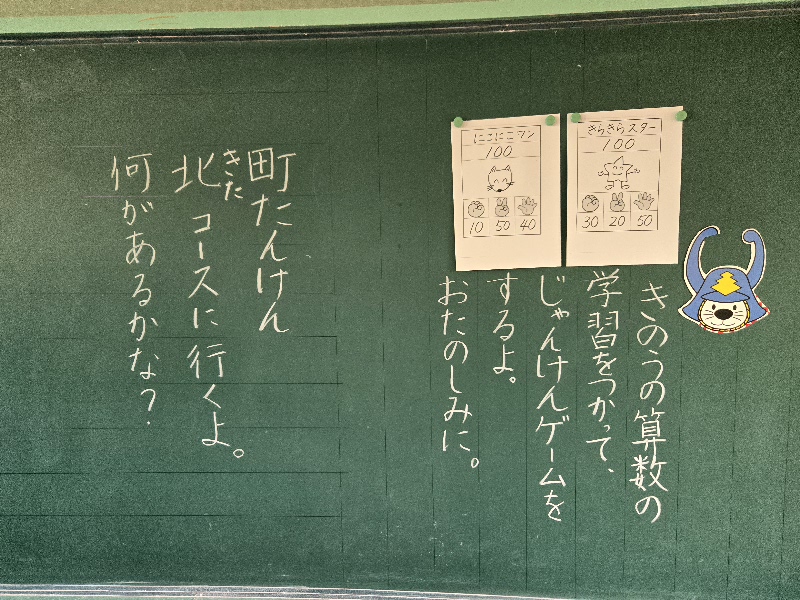 きらきらスター
100
30 20 50
にこにこマン
100
10 50 40
きのうの算数の
学習をつかって、
じゃんけんゲームを
するよ。
おたのしみに。
町たんけん
北コースに行くよ。
きた
何があるかな?